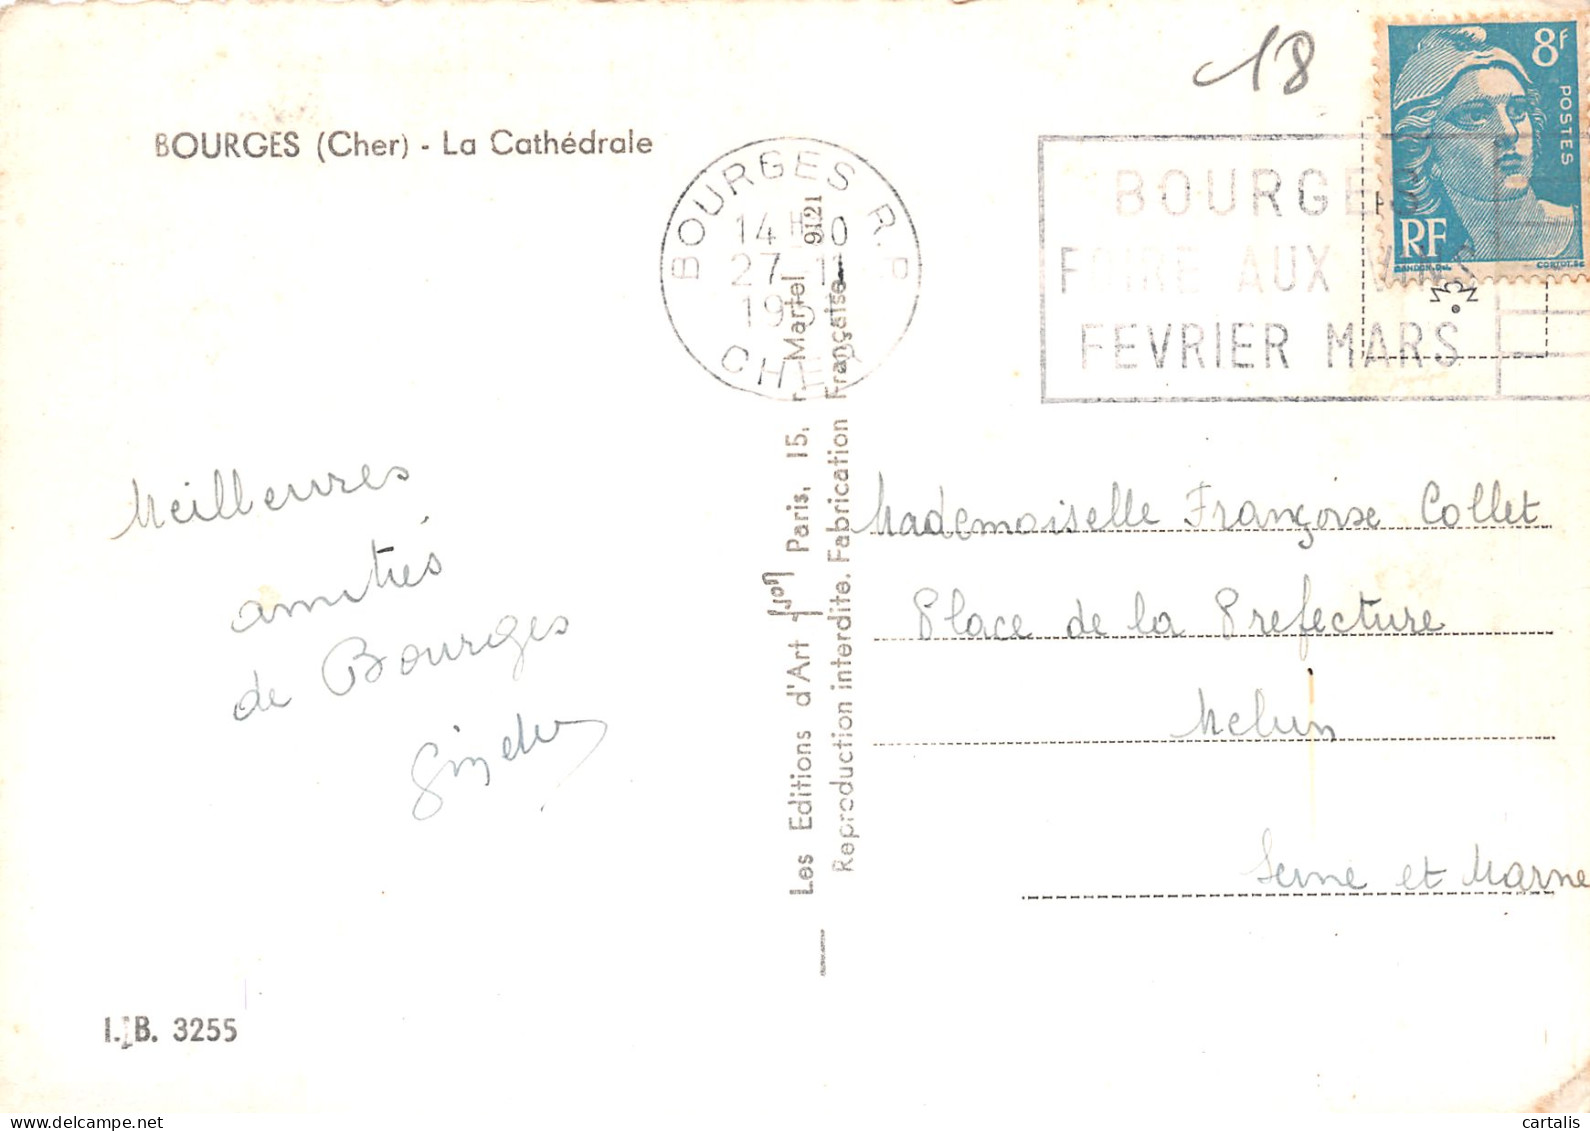 BOURGES (Cher) - La Cathédrale
18
8F
POSTES
RF
GANDON.Del.
CORTOT.SC
BOURGES R.P.
27-11
CHER
BOURGES
FOIRE AUX VINS
FEVRIER MARS
Meilleures
amitiés
de Bourges
Les Editions d'Art Yvon Paris, 15, r. Martel 9121
Reproduction interdite. Fabrication Française
Mademoiselle Françoise Collet
Place de la Prefecture
Melun
Seine et Marne
I.B. 3255
cartalis
delcampe.net